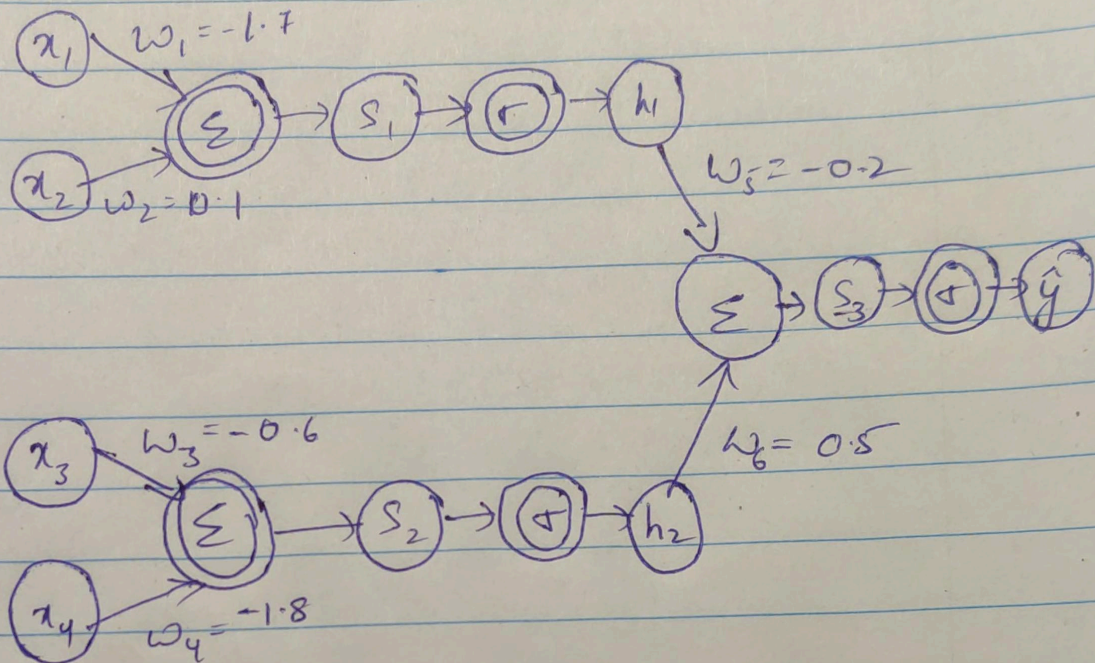 x₁ w₁ = -1.7
Σ → S₁ → σ → h₁
x₂ w₂ = 0.1
w₅ = -0.2
Σ → S₃ → σ → ŷ
x₃ w₃ = -0.6
w₆ = 0.5
Σ → S₂ → σ → h₂
x₄ w₄ = -1.8